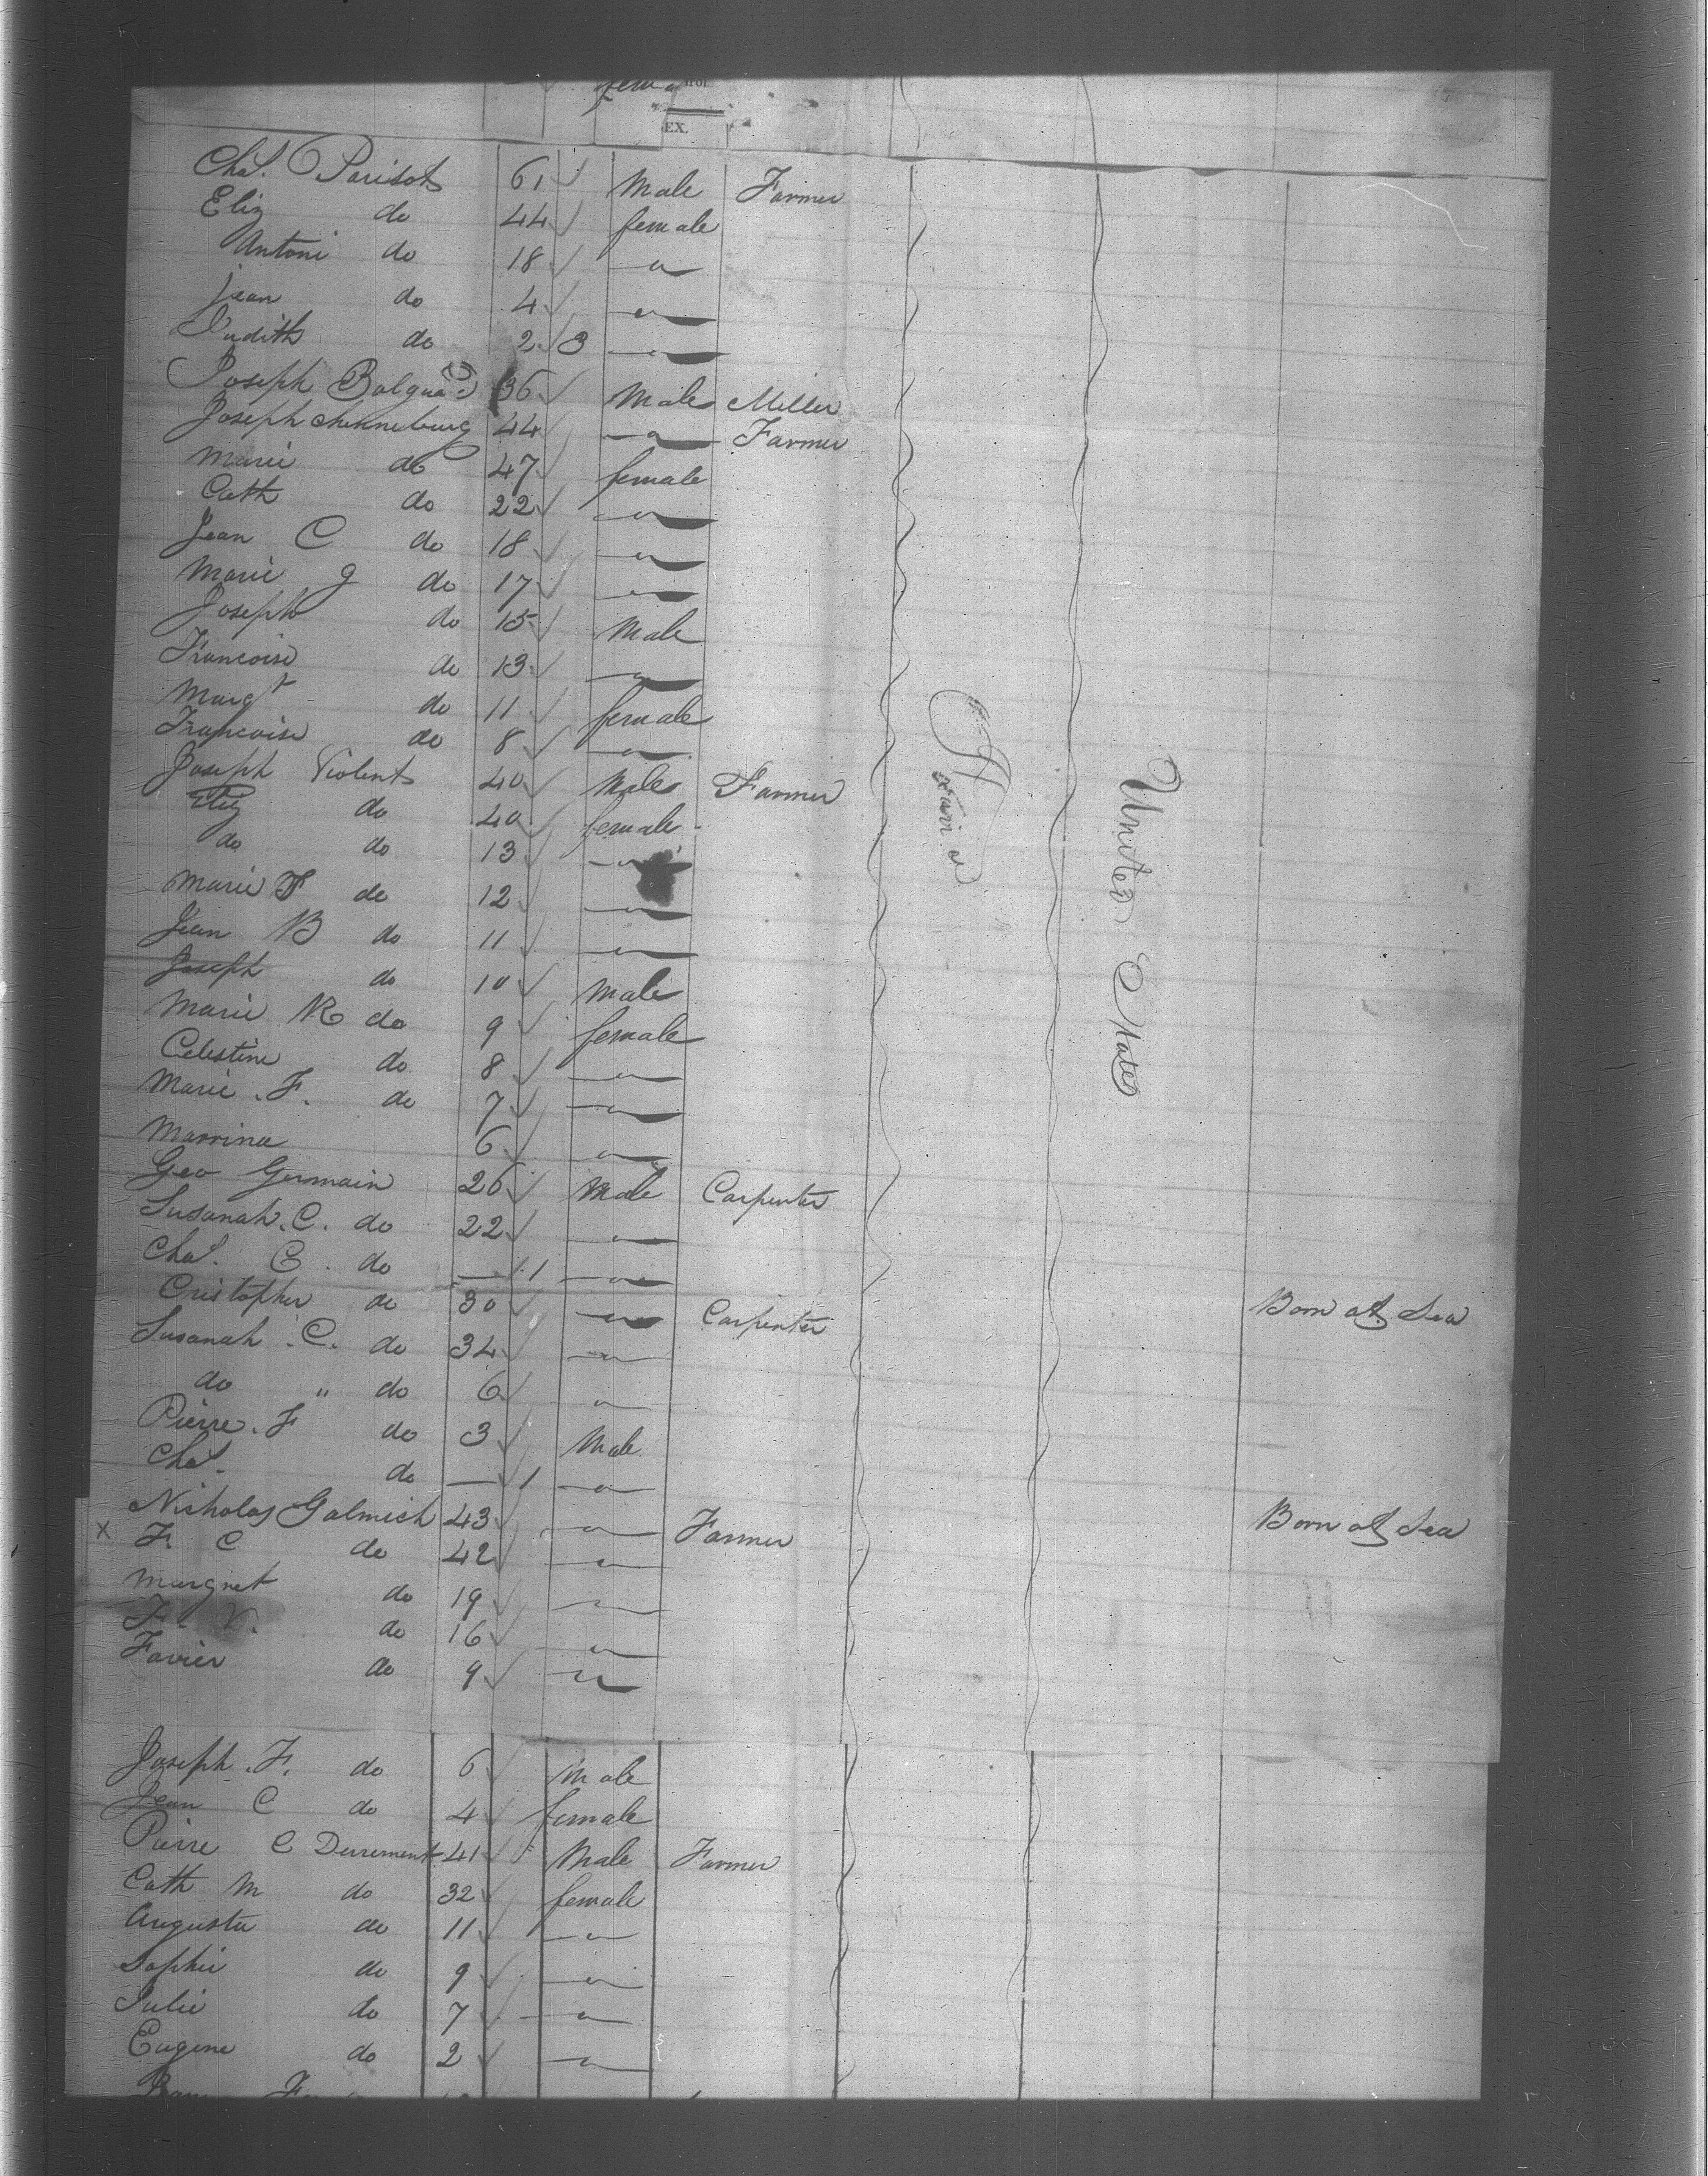 fema
EX.
Chas. Parisot 61 Male Farmer
Eliz do 44 female
Antoni do 18 "
Jean do 4 "
Judith do 2 3 "
Joseph 36 Male Miller
Joseph 44 " Farmer
Marie do 47 female
Cath do 22 "
Jean C do 18 "
Marie G do 17 "
Joseph do 15 Male
Francoise do 13 "
Margt do 11 female
Francoise do 8 "
Joseph Violent 40 Male Farmer
Eliz do 40 female
do do 13 "
Marie F do 12 "
Jean B do 11 "
Joseph do 10 Male
Marie R do 9 female
Celestine do 8 "
Marie. F. do 7 "
Marrina 6 "
Geo Germain 26 Male Carpenter
Susanah. C. do 22 "
Chas. C. do — 1 "
Cristopher do 30 " Carpenter Born at Sea
Susanah. C. do 34 "
do " do 6 "
Pierre. F do 3 Male
Chas. do — 1 "
Nicholas Galmich 43 " Farmer Born at Sea
x F. C do 42 "
Margret do 19 "
F. V. do 16 "
Favier do 9 "
Joseph. F. do 6 Male
Jean C do 4 female
Pierre C Durement 41 Male Farmer
Cath M do 32 female
Augusta do 11 "
Sophie do 9 "
Julie do 7 "
Eugene do 2 "
France
United States